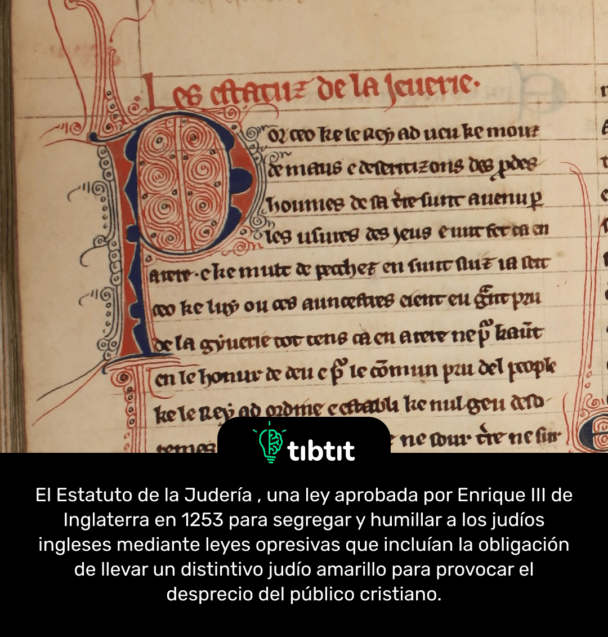 Les estatuz de la Jeuerie.
Por ceo ke le Rey ad ueu ke mouz
de maus e deseritizons des pdes
houmes de sa t're sunt auenu p
les usures des Jeus e unt fet ca en
arere. e ke mult de pechez en sunt
ceo ke luy ou ces auncestres eient eu g'nt pru
de la gyuerie tot tens ca en arere ne p' kaut
en le honur de deu e p' le comun pru del people
ke le Rey ad ordine e establi ke nul geu
ne sour t're ne sur
tıbtıt
El Estatuto de la Judería , una ley aprobada por Enrique III de
Inglaterra en 1253 para segregar y humillar a los judíos
ingleses mediante leyes opresivas que incluían la obligación
de llevar un distintivo judío amarillo para provocar el
desprecio del público cristiano.